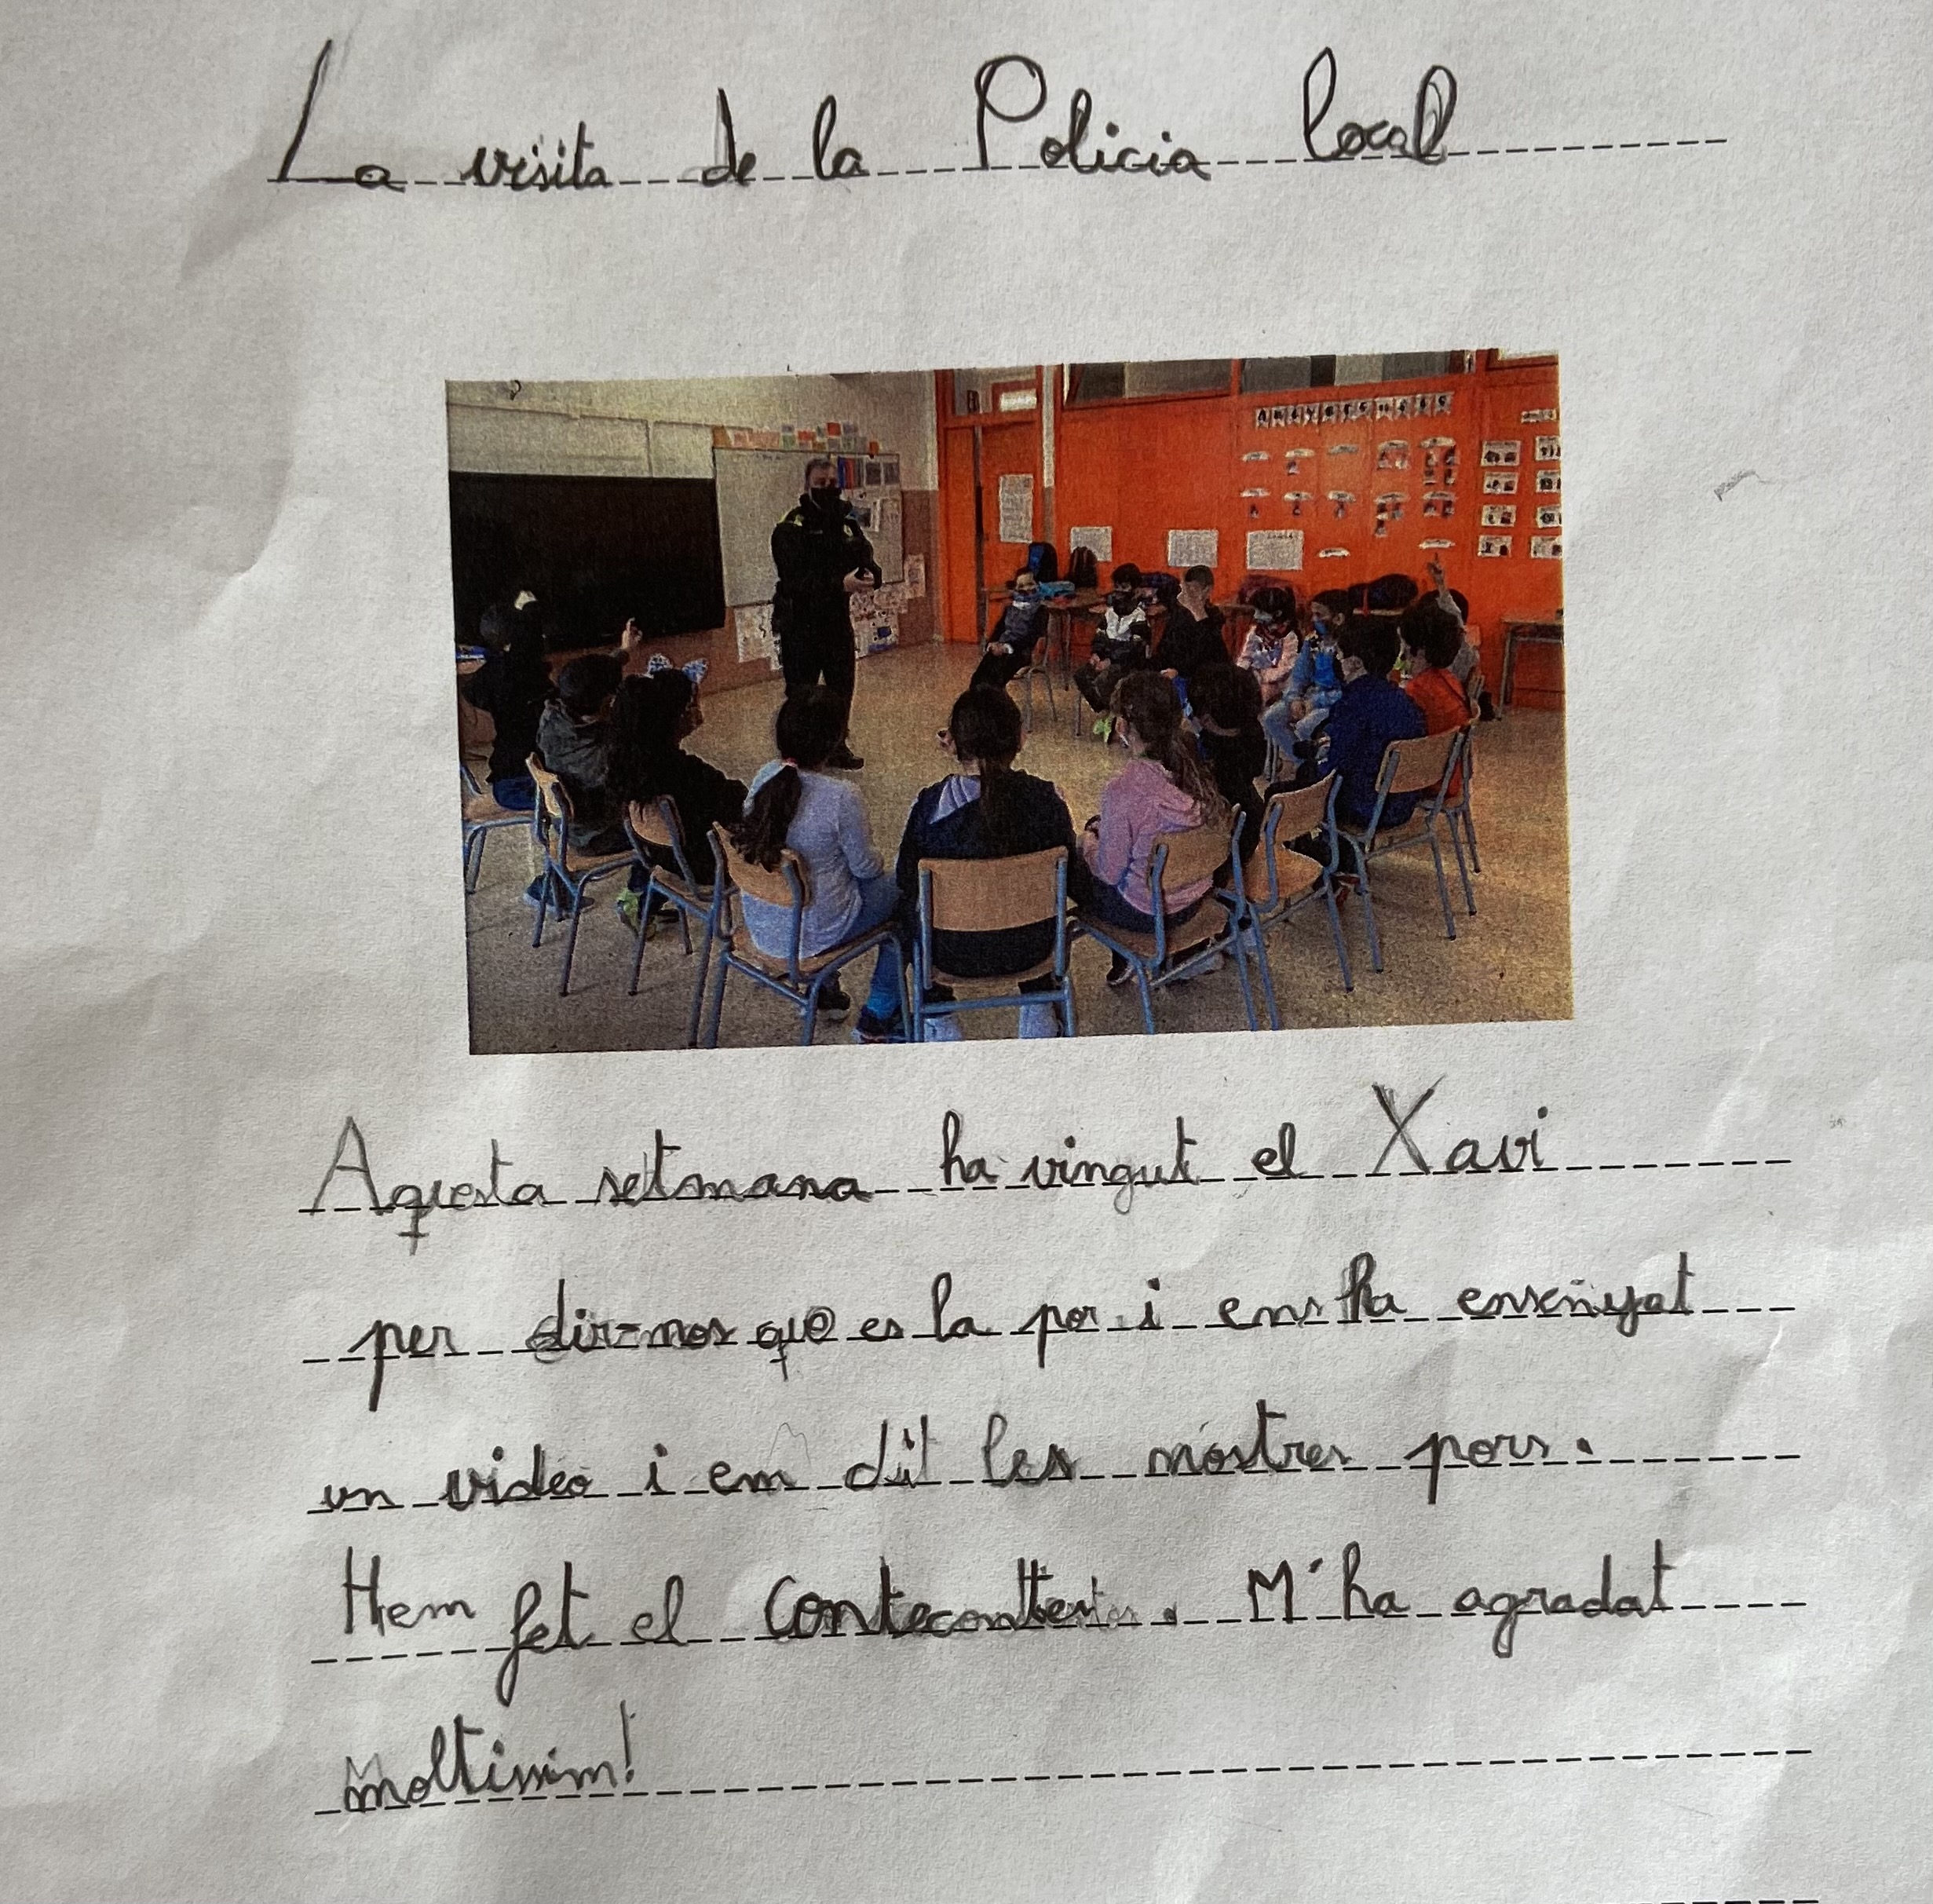 La visita de la Policia local
Aquesta setmana ha vingut el Xavi
per dir-nos que es la por i ens ha ensenyat
un video i em dit les nostres pors.
Hem fet el M'ha agradat
moltissim!